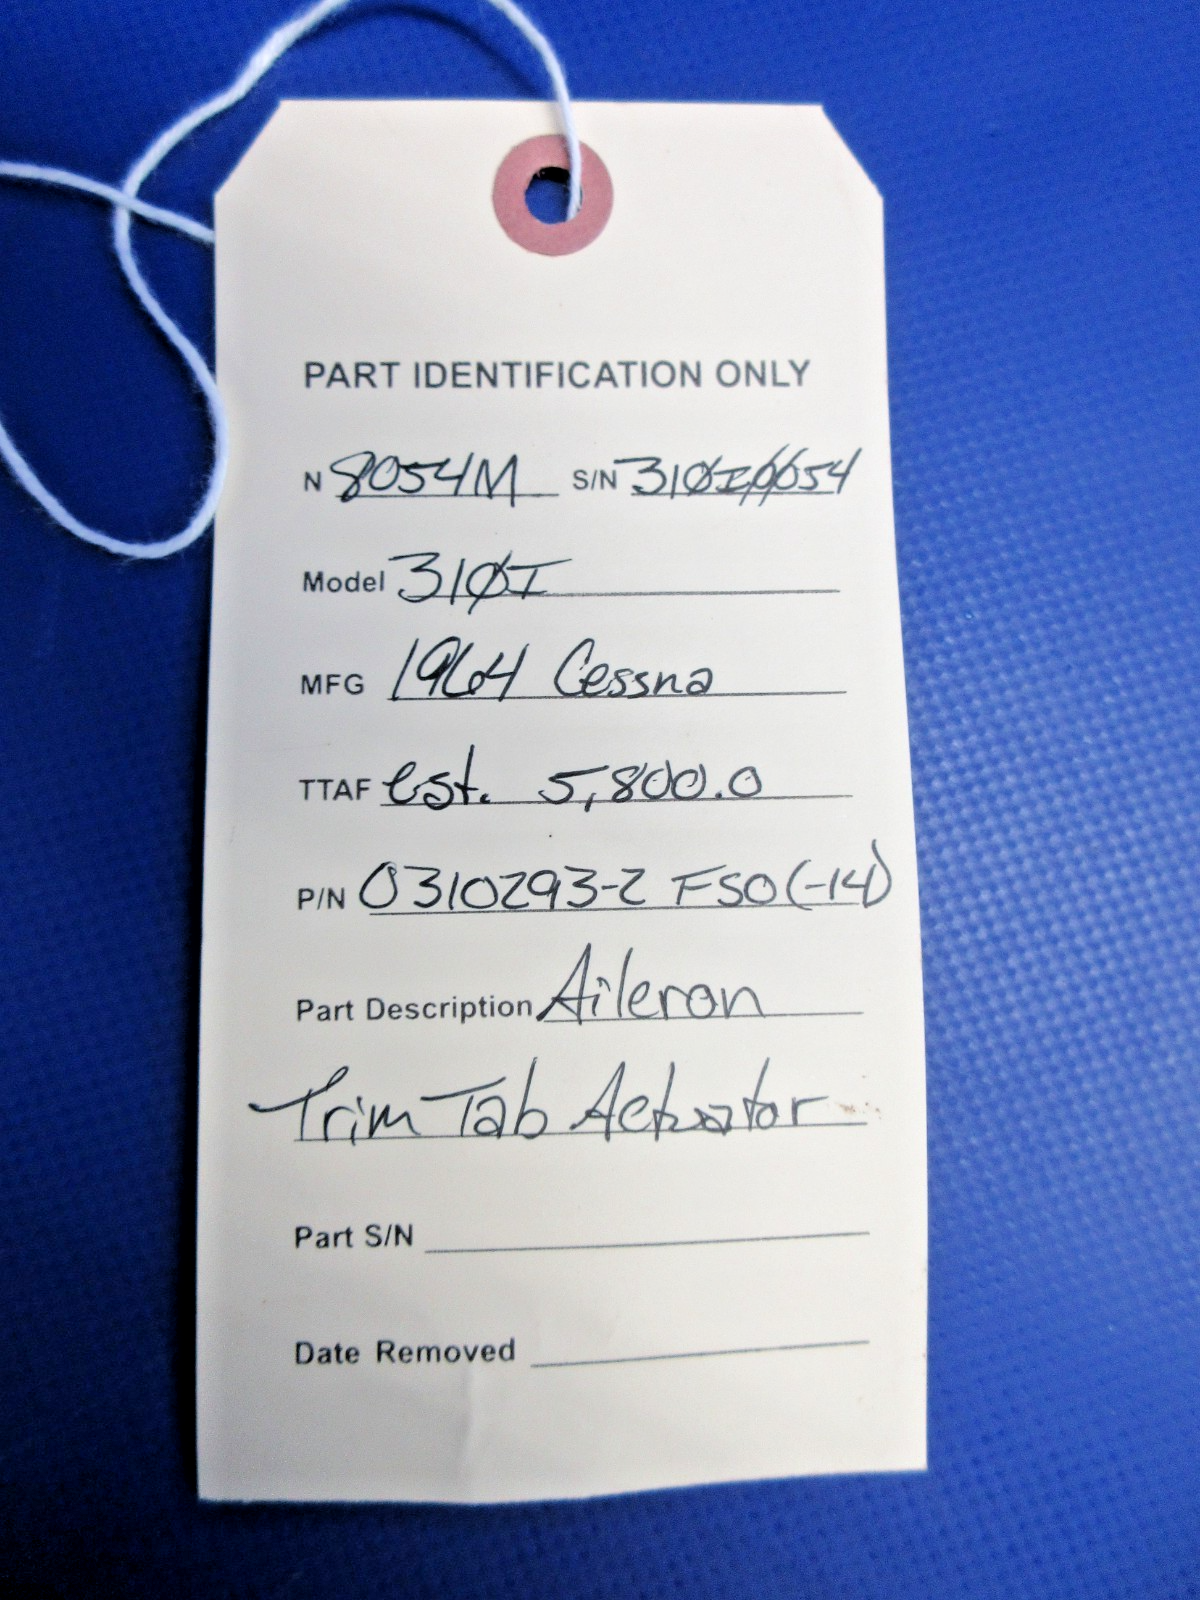 PART IDENTIFICATION ONLY
N 8054M S/N 310I0054
Model 310I
MFG 1964 Cessna
TTAF est. 5,800.0
P/N 0310293-2 FSO(-14)
Part Description Aileron
Trim Tab Actuator
Part S/N
Date Removed